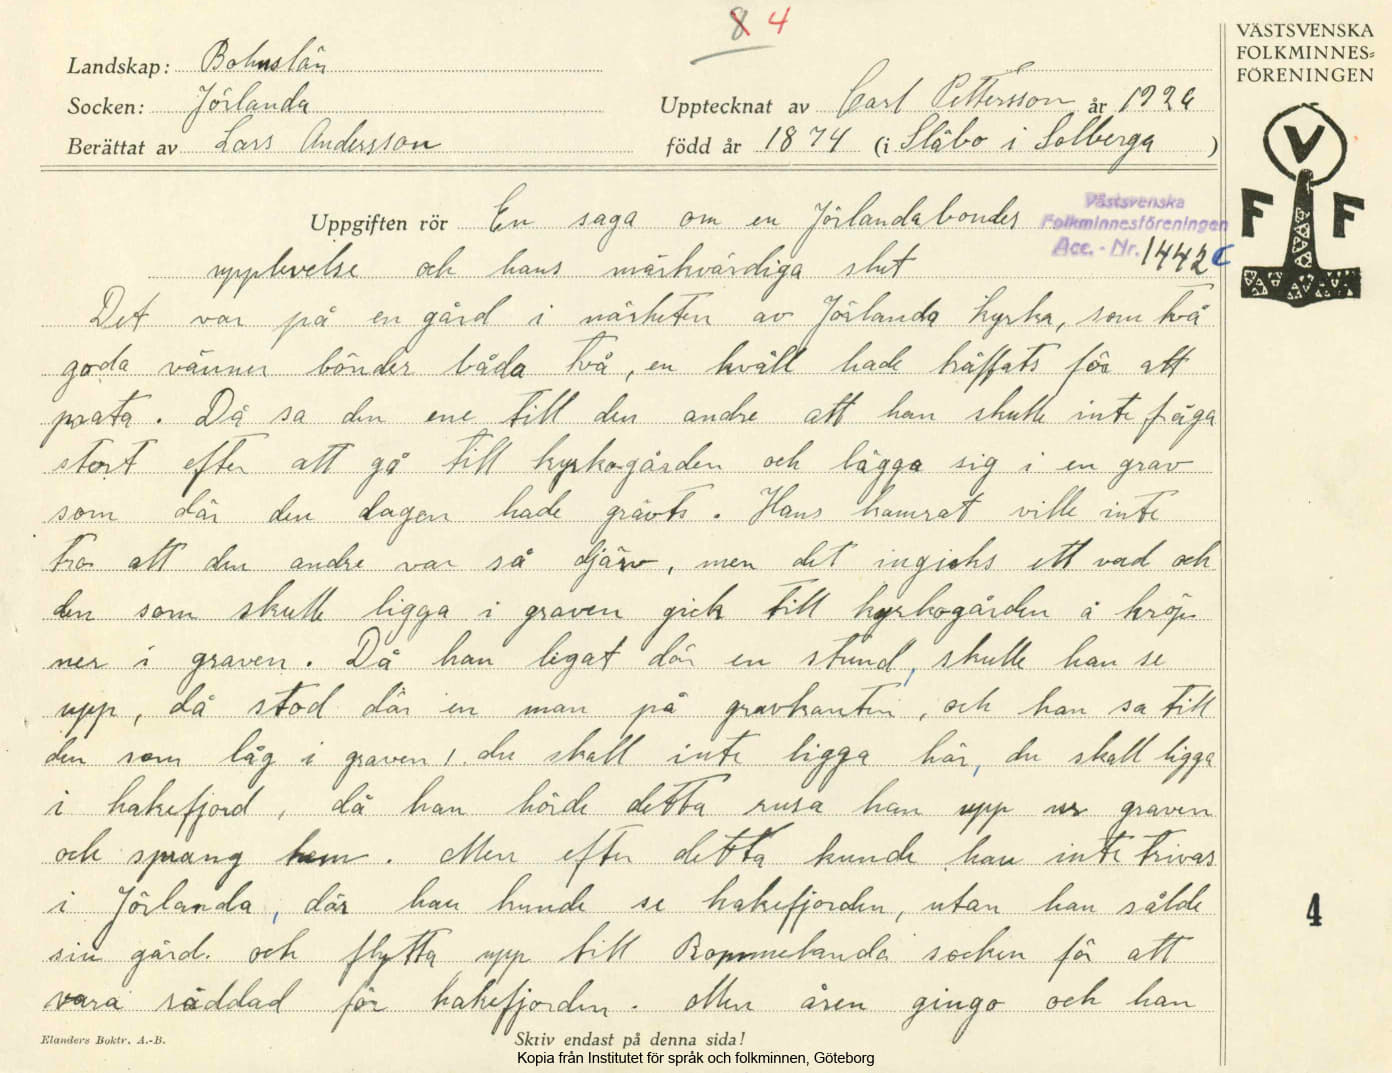 8 4
VÄSTSVENSKA
FOLKMINNES-
FÖRENINGEN
V
F F
Landskap: Bohuslän
Socken: Jörlanda
Upptecknat av Carl Pettersson år 1926
Berättat av Lars Andersson
född år 1874 (i Släbo i Solberga )
Västsvenska
Folkminnesföreningen
Acc. - Nr. 1442 C
Uppgiften rör En saga om en Jörlandabondes
upplevelse och hans märkvärdiga slut
Det var på en gård i närheten av Jörlanda kyrka, som två
goda vänner bönder båda två, en kväll hade träffats för att
prata. Då sa den ene till den andre att han skulle inte fråga
stort efter att gå till kyrkogården och lägga sig i en grav
som där den dagen hade grävts. Hans kamrat ville inte
tro att den andre var så djärv, men det ingicks ett vad och
den som skulle ligga i graven gick till kyrkogården å kröp
ner i graven. Då han legat där en stund, skulle han se
upp, då stod där en man på gravkanten, och han sa till
den som låg i graven !. du skall inte ligga här, du skall ligga
i hakefjord, då han hörde detta rusa han upp ur graven
och sprang hem. Men efter detta kunde han inte trivas
i Jörlanda, där han kunde se hakefjorden, utan han sålde
sin gård. och flytta upp till Rommelanda socken för att
vara räddad för hakefjorden. Men åren gingo och han
4
Elanders Boktr. A.-B.
Skriv endast på denna sida!
Kopia från Institutet för språk och folkminnen, Göteborg